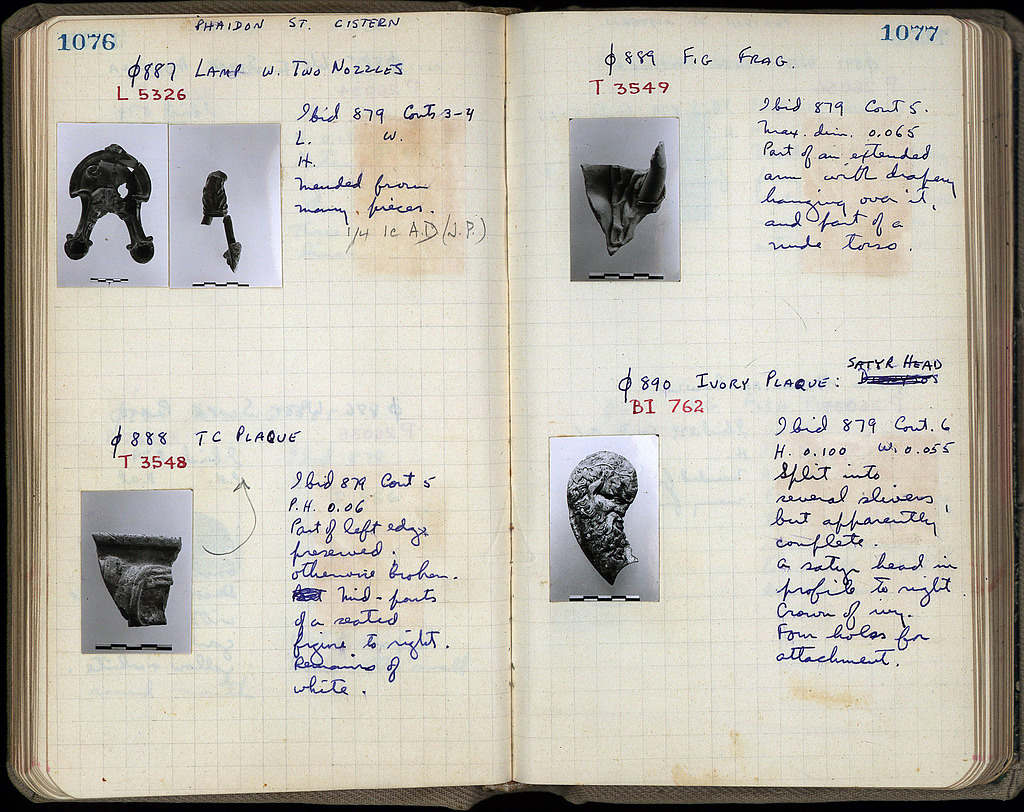 1076
PHAIDON ST. CISTERN
φ887 LAMP W. TWO NOZZLES
L 5326
Ibid 879 Conts 3-4
L. W.
H.
Mended from
many pieces.
1/4 1c A.D (J.P.)
φ888 TC PLAQUE
T 3548
Ibid 879 Cont 5
P.H. 0.06
Part of left edge
preserved.
otherwise broken.
Mid-parts
of a seated
figure to right.
Remains of
white.
1077
φ889 FIG FRAG.
T 3549
Ibid 879 Cont 5.
Max. dim. 0.065
Part of an extended
arm with drapery
hanging over it,
and part of a
nude torso.
SATYR HEAD
φ890 IVORY PLAQUE: Dionysos
BI 762
Ibid 879 Cont. 6
H. 0.100 W. 0.055
Split into
several slivers,
but apparently
complete.
A satyr head in
profile to right
Crown of ivy.
Four holes for
attachment.